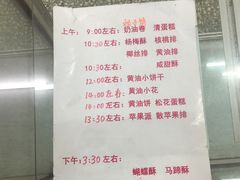 上午： 9:00左右：奶油卷 清蛋糕
10:30左右：杨梅酥 核桃排
椰丝排 黄油排
左右： 咸甜酥
12:00左右：黄油小饼干
14:00左右：黄油小花
左右：黄油饼 松花蛋糕
13:30左右：苹果派 散苹果排
下午：3:30左右：
蝴蝶酥 马蹄酥